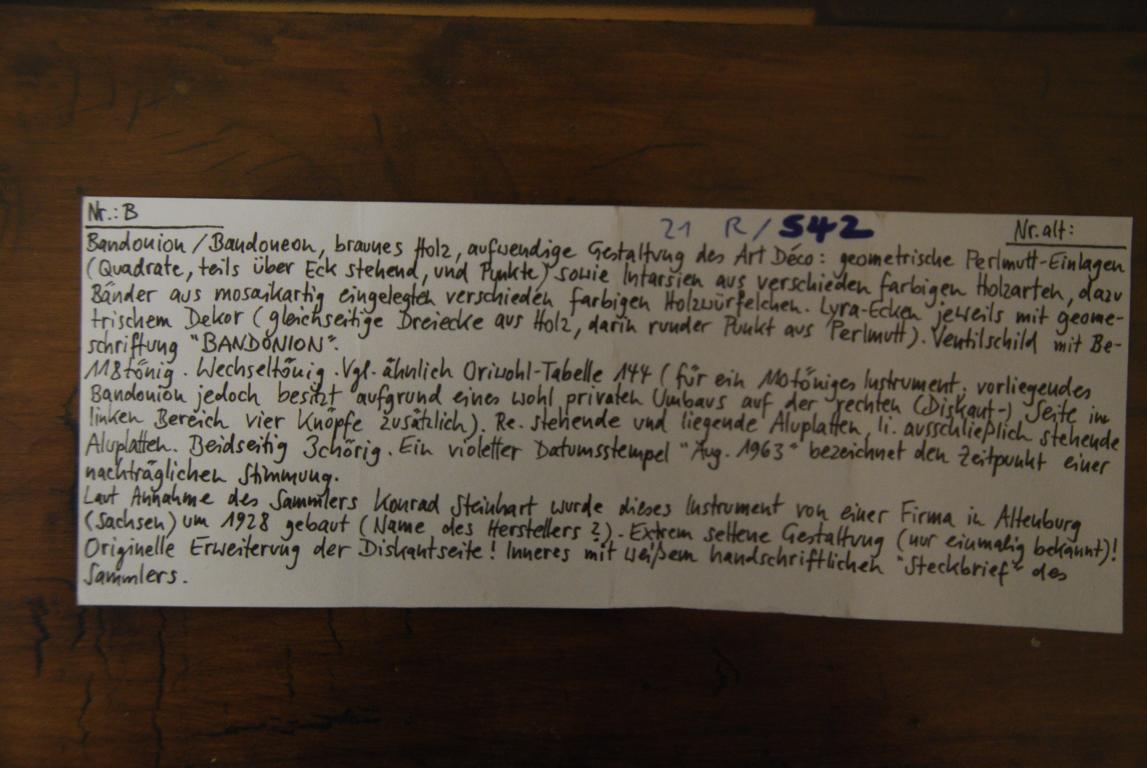 Nr.: B
21 R/542
Nr. alt:
Bandonion / Bandoneon, braunes Holz, aufwendige Gestaltung des Art Déco: geometrische Perlmutt-Einlagen
(Quadrate, teils über Eck stehend, und Punkte) sowie Intarsien aus verschieden farbigen Holzarten, dazu
Bänder aus mosaikartig eingelegten verschieden farbigen Holzwürfelchen. Lyra-Ecken jeweils mit geome-
trischem Dekor (gleichseitige Dreiecke aus Holz, darin runder Punkt aus Perlmutt). Ventilschild mit Be-
schriftung "BANDONION".
118tönig. Wechseltönig. Vgl. ähnlich Oriwohl-Tabelle 144 (für ein 110töniges Instrument, vorliegendes
Bandonion jedoch besitzt aufgrund eines wohl privaten Umbaus auf der rechten (Diskant-) Seite im
linken Bereich vier Knöpfe zusätzlich). Re. stehende und liegende Aluplatten, li. ausschließlich stehende
Aluplatten. Beidseitig 3chörig. Ein violetter Datumsstempel "Aug. 1963" bezeichnet den Zeitpunkt einer
nachträglichen Stimmung.
Laut Annahme des Sammlers Konrad Steinhart wurde dieses Instrument von einer Firma in Altenburg
(Sachsen) um 1928 gebaut (Name des Herstellers?). Extrem seltene Gestaltung (nur einmalig bekannt)!
Originelle Erweiterung der Diskantseite! Inneres mit weißem handschriftlichen "Steckbrief" des
Sammlers.